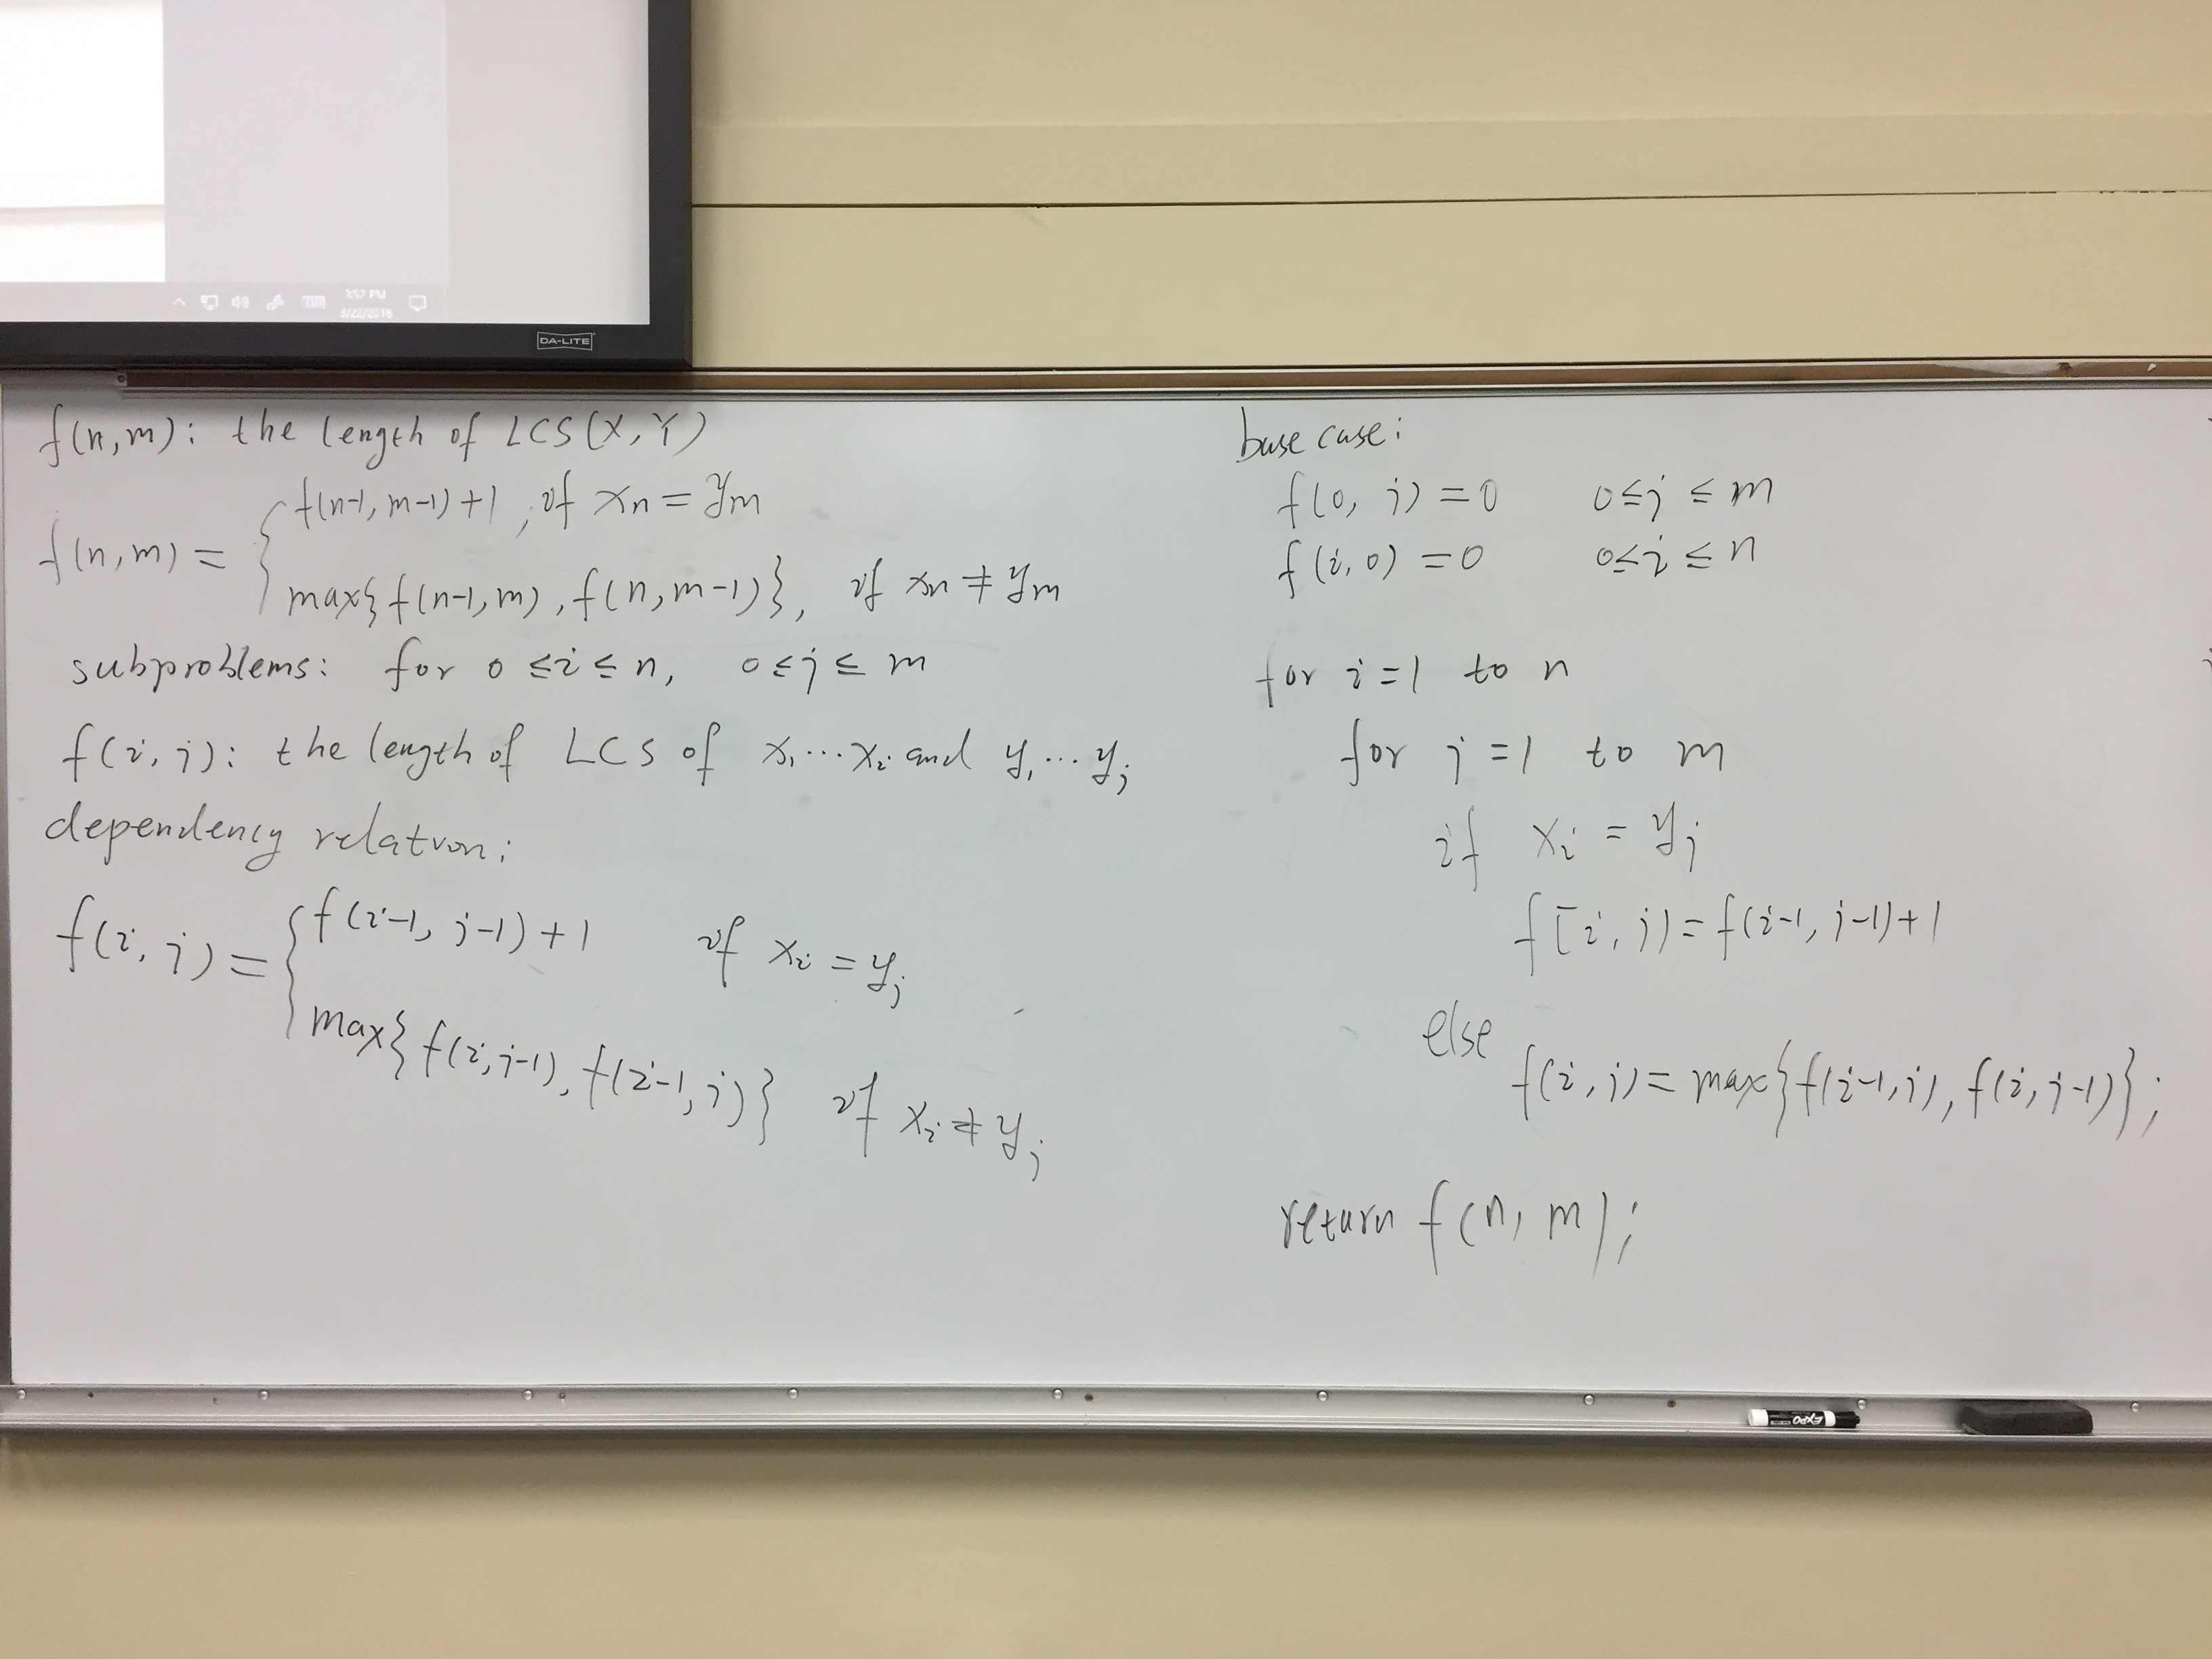 DA-LITE
f(n,m): the length of LCS(X,Y)
f(n,m) = { f(n-1, m-1)+1, if xn = ym
max{f(n-1,m), f(n,m-1)}, if xn ≠ ym
subproblems: for 0 ≤ i ≤ n, 0 ≤ j ≤ m
f(i,j): the length of LCS of x1 ... xi and y1 ... yj
dependency relation:
f(i,j) = { f(i-1, j-1)+1 if xi = yj
max{f(i,j-1), f(i-1,j)} if xi ≠ yj
base case:
f(0, j) = 0 0 ≤ j ≤ m
f(i, 0) = 0 0 ≤ i ≤ n
for i=1 to n
for j=1 to m
if xi = yj
f[i, j) = f(i-1, j-1)+1
else
f(i, j) = max{f(i-1,j), f(i,j-1)};
return f(n, m);
EXPO